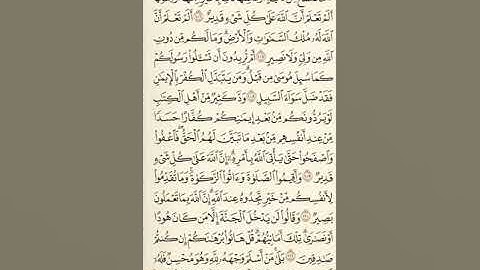 أَلَمْ تَعْلَمْ أَنَّ ٱللَّهَ عَلَىٰ كُلِّ شَىْءٍ قَدِيرٌ ۝ أَلَمْ تَعْلَمْ أَنَّ
ٱللَّهَ لَهُۥ مُلْكُ ٱلسَّمَٰوَٰتِ وَٱلْأَرْضِ وَمَا لَكُم مِّن دُونِ
ٱللَّهِ مِن وَلِىٍّ وَلَا نَصِيرٍ ۝ أَمْ تُرِيدُونَ أَن تَسْـَٔلُوا۟ رَسُولَكُمْ
كَمَا سُئِلَ مُوسَىٰ مِن قَبْلُ وَمَن يَتَبَدَّلِ ٱلْكُفْرَ بِٱلْإِيمَٰنِ
فَقَدْ ضَلَّ سَوَآءَ ٱلسَّبِيلِ ۝ وَدَّ كَثِيرٌ مِّنْ أَهْلِ ٱلْكِتَٰبِ
لَوْ يَرُدُّونَكُم مِّنۢ بَعْدِ إِيمَٰنِكُمْ كُفَّارًا حَسَدًا
مِّنْ عِندِ أَنفُسِهِم مِّنۢ بَعْدِ مَا تَبَيَّنَ لَهُمُ ٱلْحَقُّ فَٱعْفُوا۟
وَٱصْفَحُوا۟ حَتَّىٰ يَأْتِىَ ٱللَّهُ بِأَمْرِهِۦٓ إِنَّ ٱللَّهَ عَلَىٰ كُلِّ شَىْءٍ
قَدِيرٌ ۝ وَأَقِيمُوا۟ ٱلصَّلَوٰةَ وَءَاتُوا۟ ٱلزَّكَوٰةَ وَمَا تُقَدِّمُوا۟
لِأَنفُسِكُم مِّنْ خَيْرٍ تَجِدُوهُ عِندَ ٱللَّهِ إِنَّ ٱللَّهَ بِمَا تَعْمَلُونَ
بَصِيرٌ ۝ وَقَالُوا۟ لَن يَدْخُلَ ٱلْجَنَّةَ إِلَّا مَن كَانَ هُودًا
أَوْ نَصَٰرَىٰ تِلْكَ أَمَانِيُّهُمْ قُلْ هَاتُوا۟ بُرْهَٰنَكُمْ إِن كُنتُمْ
صَٰدِقِينَ ۝ بَلَىٰ مَنْ أَسْلَمَ وَجْهَهُۥ لِلَّهِ وَهُوَ مُحْسِنٌ فَلَهُۥٓ